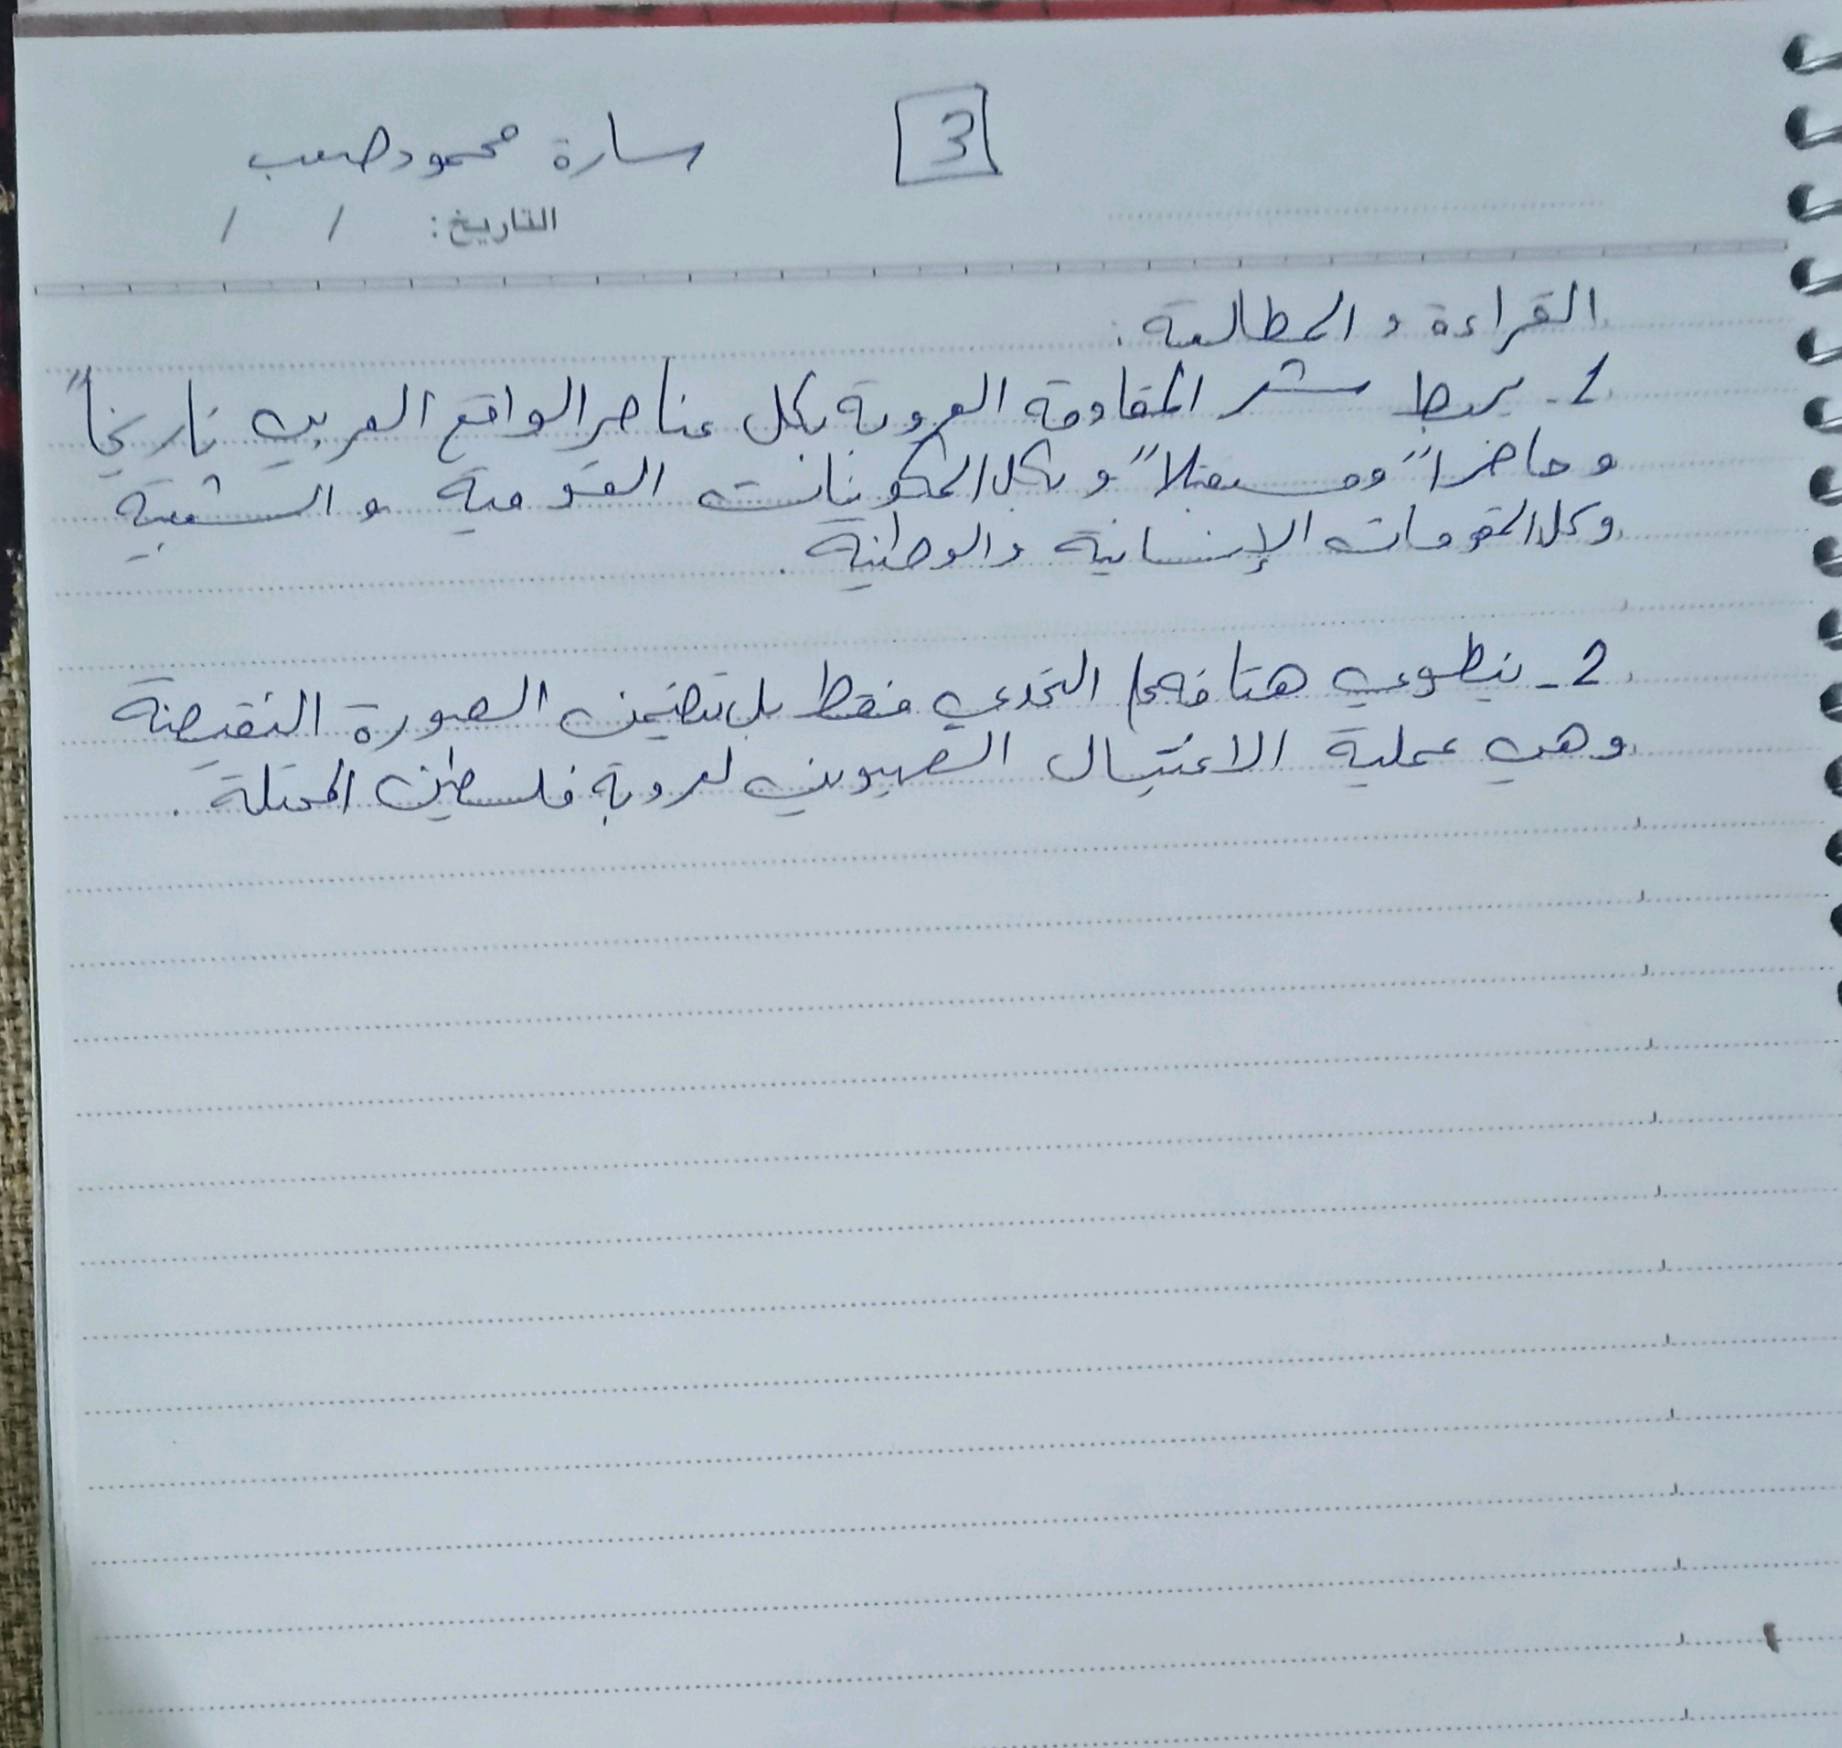 3
سارة محمود صعب
التاريخ: / /
القراءة والمطالعة:
1- يربط شعر المقاومة العروبة بكل عناصر الواقع العربي تاريخاً
وحاضراً ومستقبلاً وبكل المكونات القومية والشعبية
وكل المقومات الإنسانية والوطنية.
2- ينطوي هتافه التحدي فقط بل يتضمن الصورة النقيضة
وهي عملية الاغتيال الصهيوني لعروبة فلسطين المحتلة.